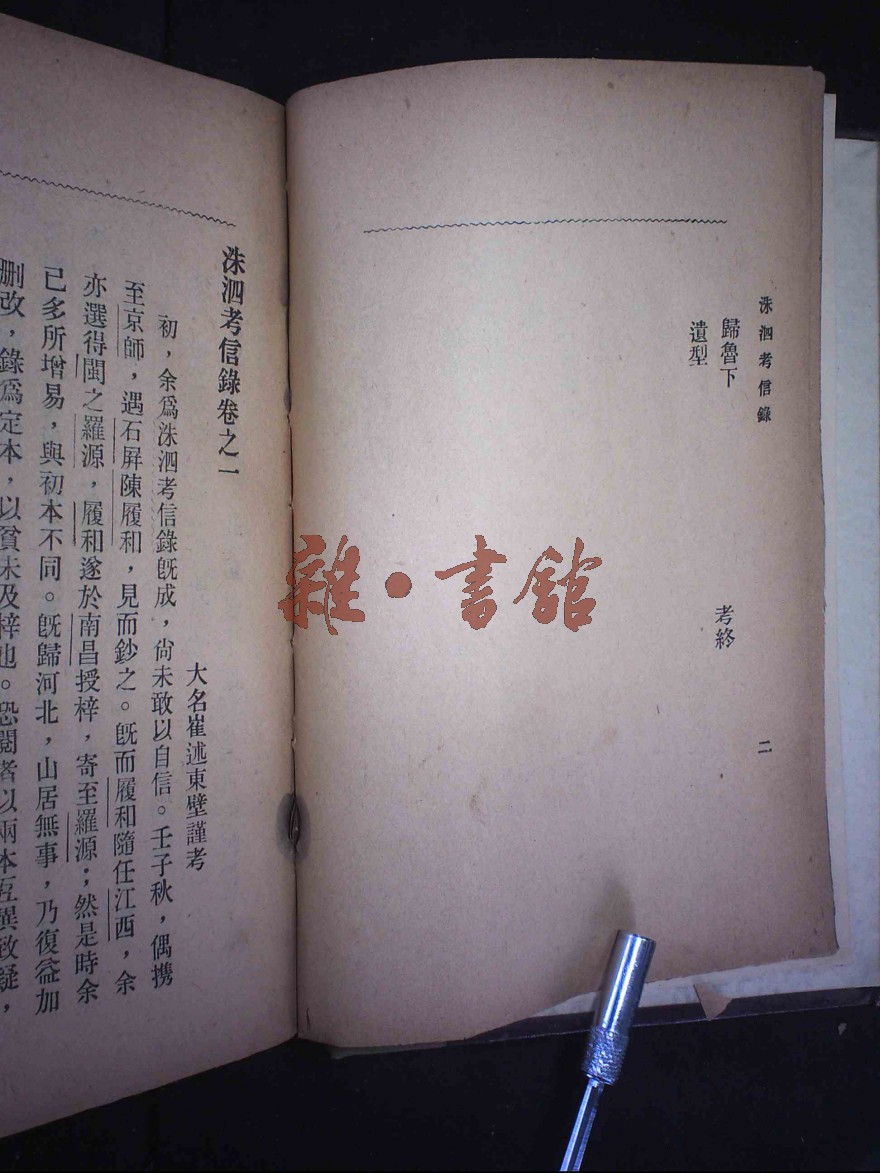 洙泗考信錄
歸魯下
考終
遺型
二
雜·書館
洙泗考信錄卷之一
大名崔述東壁謹考
初，余爲洙泗考信錄旣成，尙未敢以自信。壬子秋，偶携
至京師，遇石屏陳履和，見而鈔之。旣而履和隨任江西，余
亦選得閩之羅源，履和遂於南昌授梓，寄至羅源；然是時余
已多所增易，與初本不同。旣歸河北，山居無事，乃復益加
删改，錄爲定本，以貧未及梓也。恐閱者以兩本互異致疑，